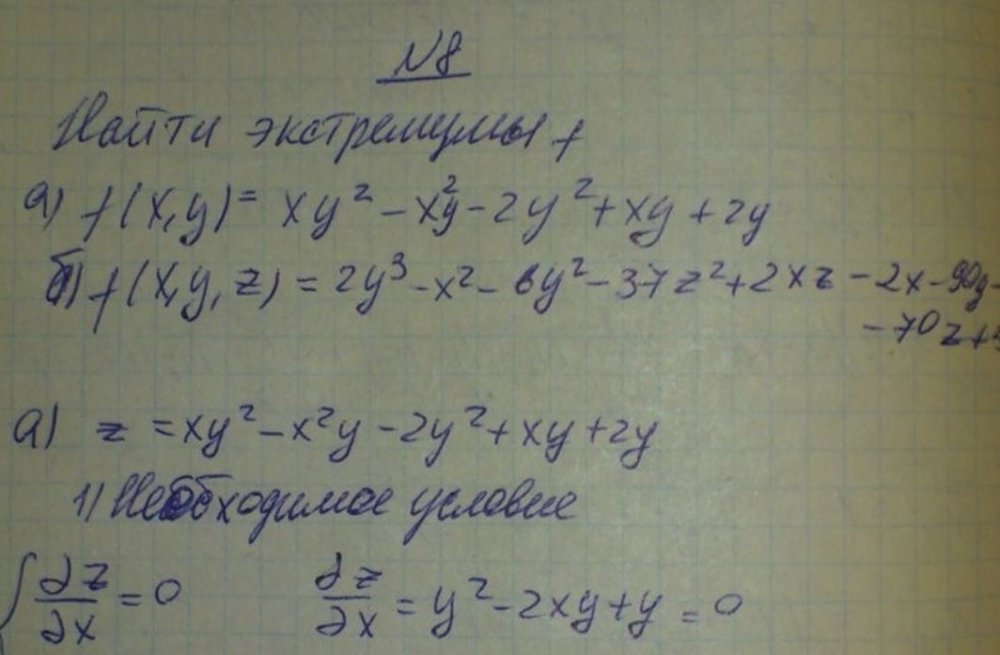 N8
Найти экстремумы f
а) f(x,y)= xy² - x²y - 2y² + xy + 2y
б) f(x,y,z) = 2y³ - x² - 6y² - 37z² + 2xz - 2x - 90y -
- 70z +
а) z = xy² - x²y - 2y² + xy + 2y
1) Необходимое условие
{ ∂z/∂x = 0 ∂z/∂x = y² - 2xy + y = 0